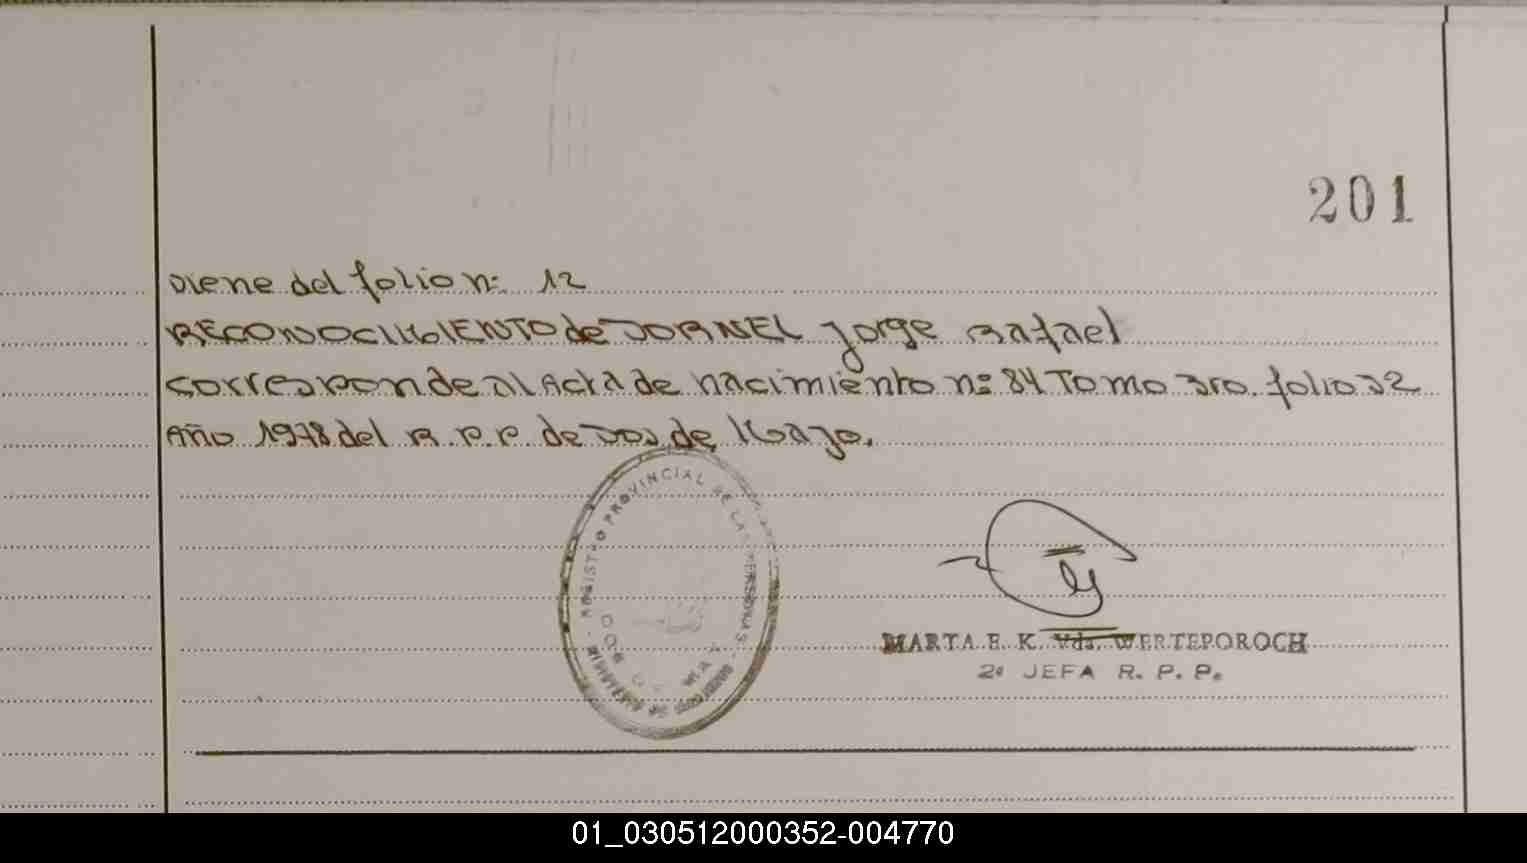 201
viene del folio nº 12
RECONOCIMIENTO de JORNEL Jorge Rafael
corresponde al Acta de nacimiento nº 84 Tomo 3ro. folio 32
Año 1978 del R.P.P. de Dos de Mayo.
REGISTRO PROVINCIAL DE LAS PERSONAS
MARTA E. K. Vda. WERTEPOROCH
2º JEFA R. P. P.
01_030512000352-004770